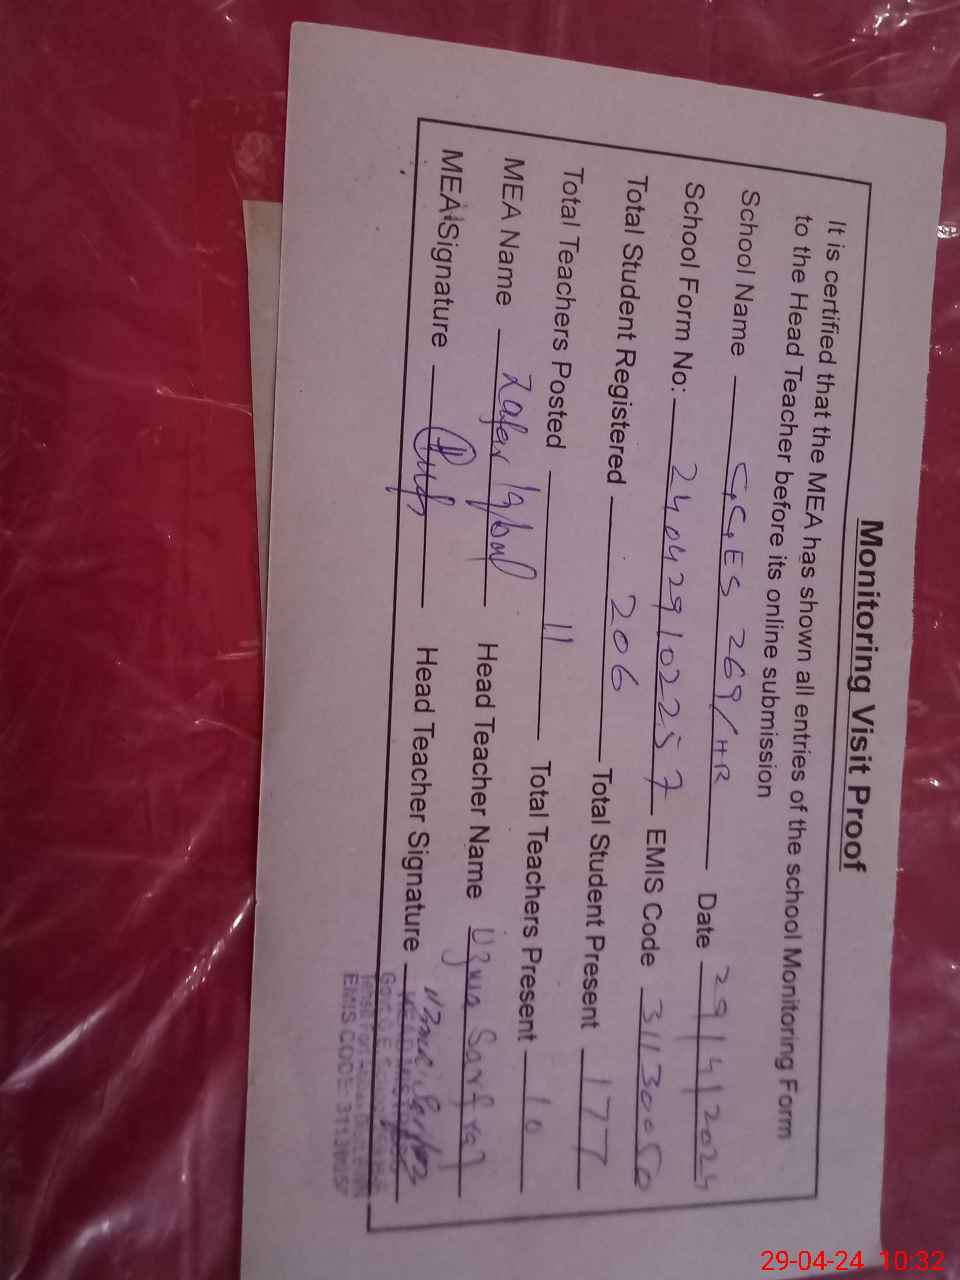 Monitoring Visit Proof
It is certified that the MEA has shown all entries of the school Monitoring Form
to the Head Teacher before its online submission
School Name GGES 269/HR Date 29/4/2024
School Form No: 240429102257 EMIS Code 31130050
Total Student Registered 206 Total Student Present 177
Total Teachers Posted 11 Total Teachers Present 10
MEA Name Zafar Iqbal Head Teacher Name Uzma Sarfraz
MEA Signature Head Teacher Signature
EMIS CODE:
29-04-24 10:32